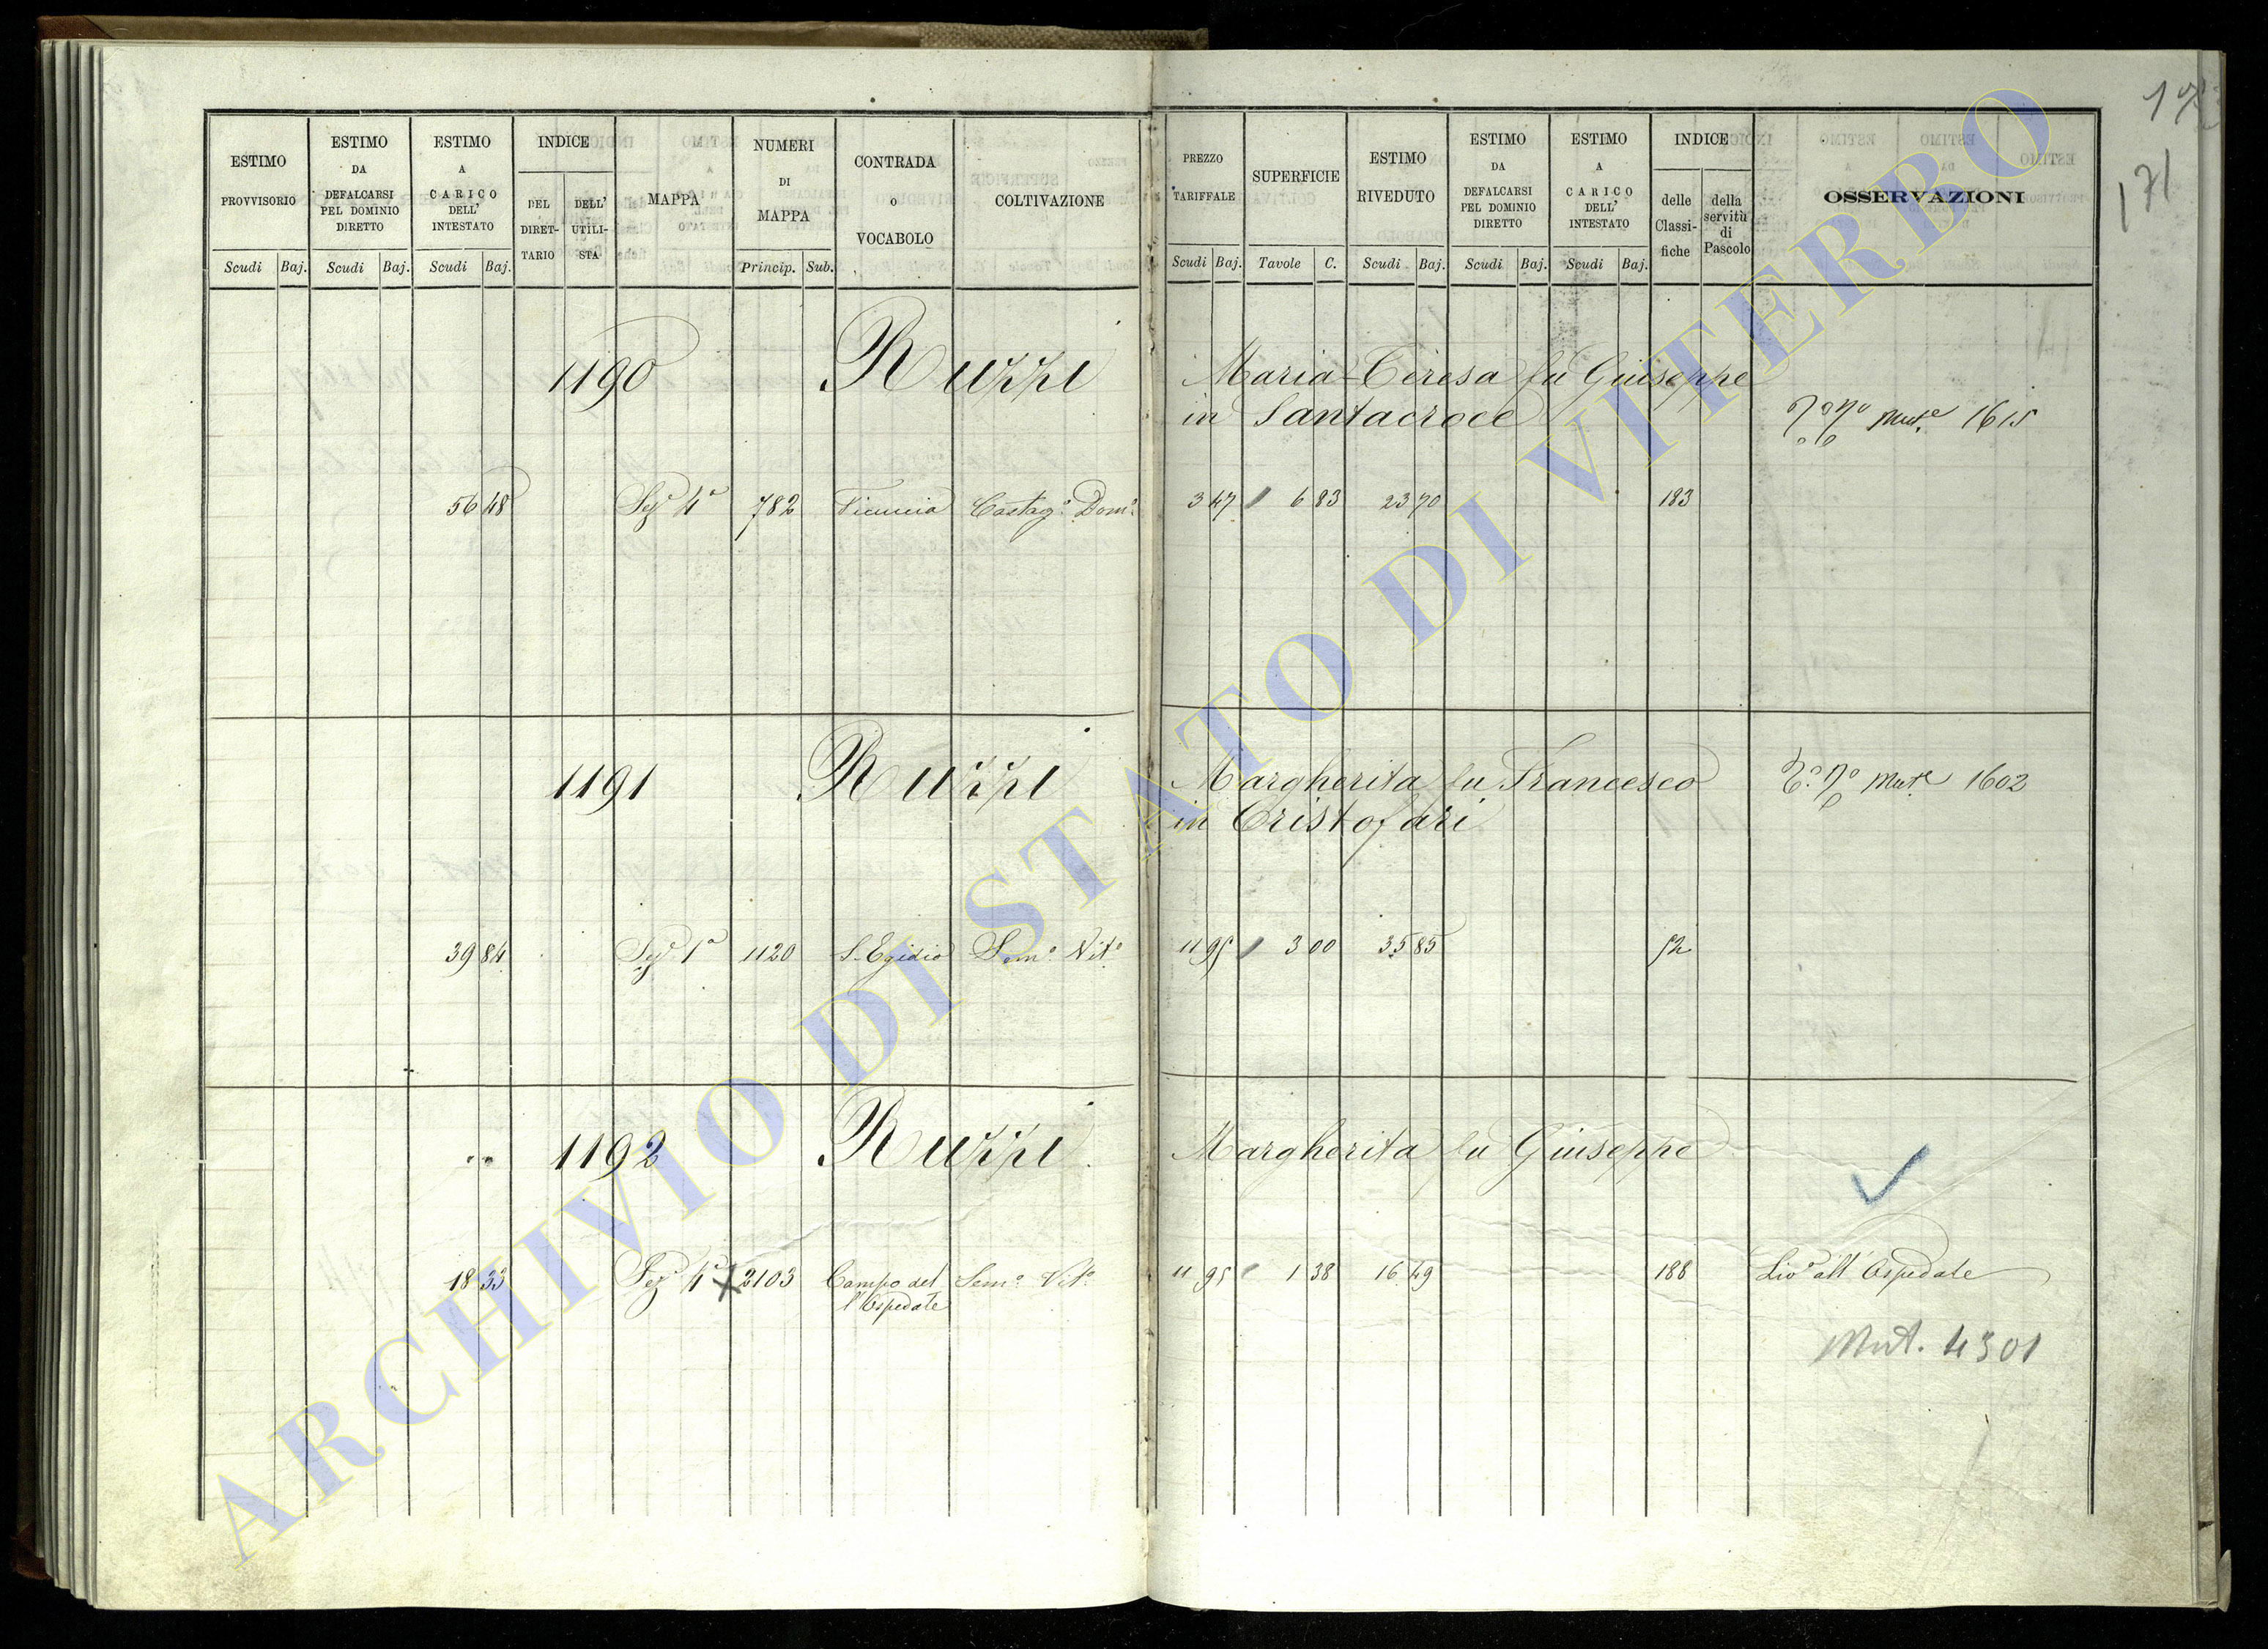 172
171
ESTIMO PROVVISORIO
ESTIMO DA DEFALCARSI PEL DOMINIO DIRETTO
ESTIMO A CARICO DELL' INTESTATO
INDICE
DEL DIRET-TARIO
DELL' UTILI-STA
MAPPA
NUMERI DI MAPPA
CONTRADA O VOCABOLO
COLTIVAZIONE
Scudi Baj. Scudi Baj. Scudi Baj. Princip. Sub.
PREZZO TARIFFALE
SUPERFICIE
ESTIMO RIVEDUTO
ESTIMO DA DEFALCARSI PEL DOMINIO DIRETTO
ESTIMO A CARICO DELL' INTESTATO
INDICE
delle Classi-fiche
della servitù di Pascolo
OSSERVAZIONI
Scudi Baj. Tavole C. Scudi Baj. Scudi Baj. Scudi Baj.
1190 Ruzzi Maria Teresa fu Giuseppe
in Santacroce
Mut.e 1615
56 48 Sez. 4a 782 Castag.o Dom.o 3 47 6 83 23 70 183
1191 Ruzzi Margherita fu Francesco
in Cristofari
Mut.e 1602
39 84 Sez. 1a 1120 S. Egidio Sem.o Vit.o 11 95 3 00 35 85 52
1192 Ruzzi Margherita fu Giuseppe
18 33 Sez. 4a 2103 Campo del Sem.o Vit.o 11 95 1 38 16 49 188 Liv.o all' Ospedale
l'Ospedale
Mut. 4301
ARCHIVIO DI STATO DI VITERBO